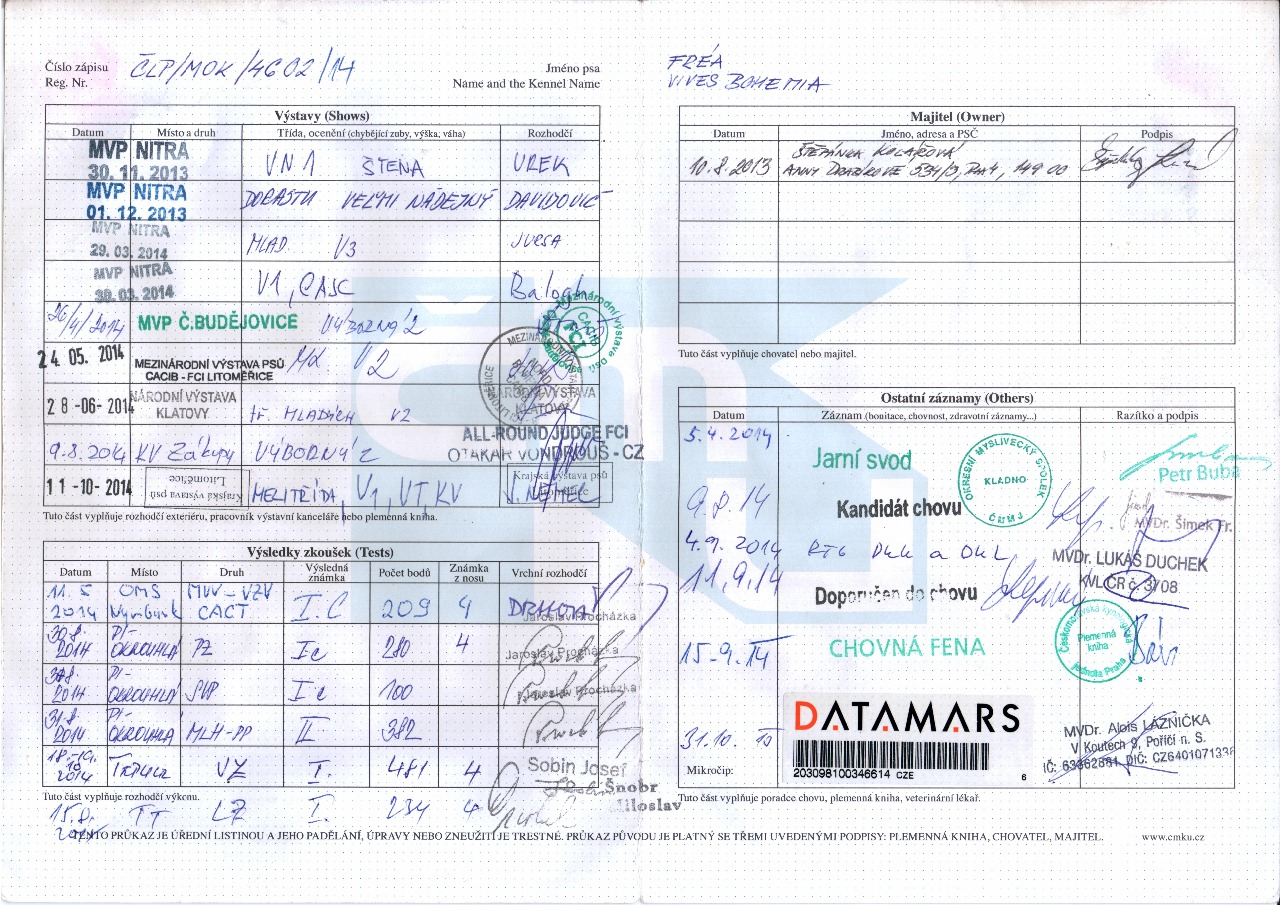 Číslo zápisu
Reg. Nr.
ČLP/MOK/4602/14
Jméno psa
Name and the Kennel Name
FRÉA
VIVES BOHEMIA
Výstavy (Shows)
Datum Místo a druh Třída, ocenění (chybějící zuby, výška, váha) Rozhodčí
MVP NITRA
30. 11. 2013
VN 1 ŠTENA UREK
MVP NITRA
01. 12. 2013
DORASTU VEĽMI NÁDEJNÝ DAVIDOVIČ
MVP NITRA
29. 03. 2014
MLAD V3
MVP NITRA
30. 03. 2014
V1, CAJC Balogh
26/4/2014 MVP Č.BUDĚJOVICE Výborná 2
Mezinárodní výstava psů
CACIB
FCI
24 05. 2014 MEZINÁRODNÍ VÝSTAVA PSŮ
CACIB - FCI LITOMĚŘICE
V2
28 -06- 2014 NÁRODNÍ VÝSTAVA
KLATOVY
tř. MLADÝCH V2
NÁRODNÍ VÝSTAVA
KLATOVY
9.8.2014 KV Zákupy VÝBORNÝ 2
ALL-ROUND JUDGE FCI
OTAKAR VONDROUŠ - CZ
11 -10- 2014 Krajská výstava psů
Litoměřice
MEZITŘÍDA, V1, VT, KV
Krajská výstava psů
Litoměřice
J. NĚMEC
Tuto část vyplňuje rozhodčí exteriéru, pracovník výstavní kanceláře nebo plemenná kniha.
Výsledky zkoušek (Tests)
Datum Místo Druh Výsledná známka Počet bodů Známka z nosu Vrchní rozhodčí
11. 5 2014 OMS Nymburk MVV-VZV CACT I.C 209 4
Jaroslav Procházka
30.8. 2014 OKROUHLÁ PZ Ic 280 4
Jaroslav Procházka
2014 OKROUHLÁ SVP Ic 100
Jaroslav Procházka
31.8. 2014 OKROUHLÁ MLH-PP II. 382
2014 VZ I. 481 4
Sobin Josef
Tuto část vyplňuje rozhodčí výkonu.
15.8. TT LZ I. 234 4
Šnobr
Miloslav
Majitel (Owner)
Datum Jméno, adresa a PSČ Podpis
10.8.2013 ŠTĚPÁNKA KOLÁŘOVÁ
ANNY DRABÍKOVÉ 534/3, PHA4, 149 00
Tuto část vyplňuje chovatel nebo majitel.
Ostatní záznamy (Others)
Datum Záznam (bonitace, chovnost, zdravotní záznamy...) Razítko a podpis
5.4.2014 Jarní svod
OKRESNÍ MYSLIVECKÝ SPOLEK
KLADNO
ČMMJ
Petr Buba
9.8.14 Kandidát chovu
MVDr. Šimek Fr.
4.9.2014 RTG DKK a DKL
MVDr. LUKÁŠ DUCHEK
KVL ČR č. 3708
11.9.14 Doporučen do chovu
15.9.14 CHOVNÁ FENA
Českomoravská kynologická
Plemenná
kniha
jednota Praha
31.10. 15
DATAMARS
203098100346614 CZE 6
Mikročip:
MVDr. Alois LÁZNIČKA
V Koutech 9, Poříčí n. S.
IČ: 63662881, DIČ: CZ640107133
Tuto část vyplňuje poradce chovu, plemenná kniha, veterinární lékař.
TENTO PRŮKAZ JE ÚŘEDNÍ LISTINOU A JEHO PADĚLÁNÍ, ÚPRAVY NEBO ZNEUŽITÍ JE TRESTNÉ. PRŮKAZ PŮVODU JE PLATNÝ SE TŘEMI UVEDENÝMI PODPISY: PLEMENNÁ KNIHA, CHOVATEL, MAJITEL.
www.cmku.cz